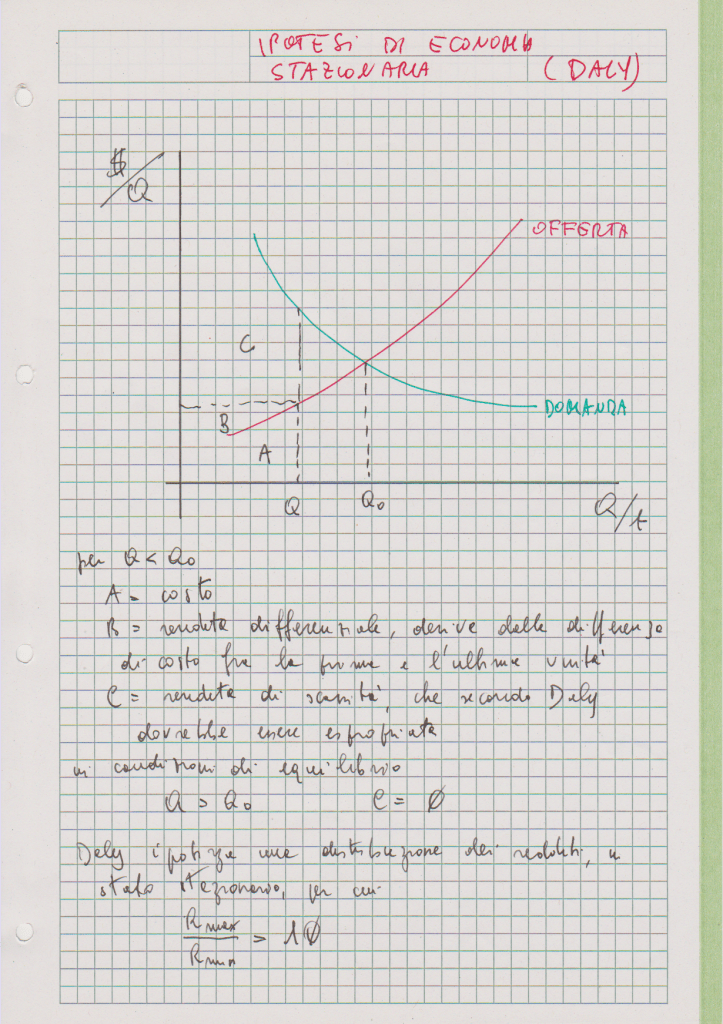 IPOTESI DI ECONOMIA
STAZIONARIA (DALY)
$/Q
OFFERTA
C
DOMANDA
B
A
Q Q₀ Q/t
per Q < Q₀
A = costo
B = rendita differenziale, deriva dalla differenza
di costo fra la prima e l'ultima unità
C = rendita di scarsità, che secondo Daly
dovrebbe essere espropriata
in condizioni di equilibrio
Q = Q₀ C = 0
Daly ipotizza una distribuzione dei redditi, in
stato stazionario, per cui
Rmax
/ Rmin = 10